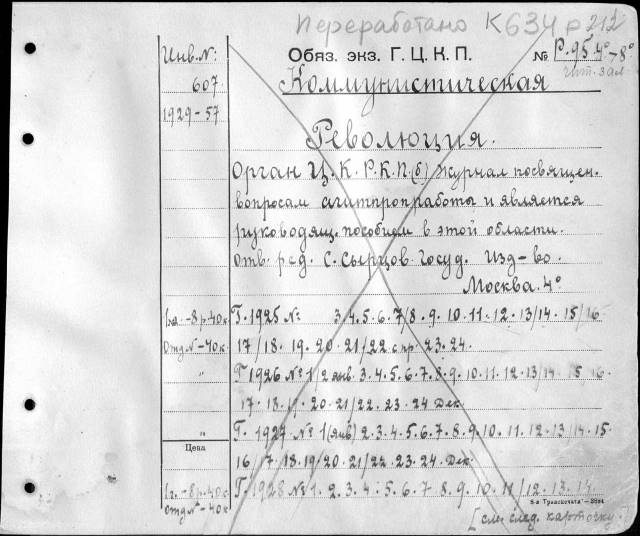 Переработано К634 р 212
Инв. №:
Обяз. экз. Г. Ц. К. П.
№ Р.95.4°-8°
чит. зал
607
1929-57
Коммунистическая
Революция.
Орган Ц.К.Р.К.П.(б) Журнал посвящен.
вопросам агитпропработы и является
руководящ. пособием в этой области.
отв. ред. С. Сырцов. Госуд. Изд-во.
Москва. 4°
-8 р. 40 к. Г. 1925 № 3.4.5.6.7/8.9.10.11.12.13/14.15/16
Отд № -40 к. 17/18.19.20.21/22 с пр. 23.24.
" Г. 1926 № 1/2 янв. 3.4.5.6.7.8.9.10.11.12.13/14.15.16.
17.18.19.20.21/22.23.24 Дек.
" Г. 1927 № 1(янв) 2.3.4.5.6.7.8.9.10.11.12.13/14.15.
Цена
16/17.18.19/20.21/22.23.24 Дек.
1 г. -8 р. 40 к. Г. 1928 № 1.2.3.4.5.6.7.8.9.10.11/12.13.14.
Отд № -40 к.
[см. след. карточку.]